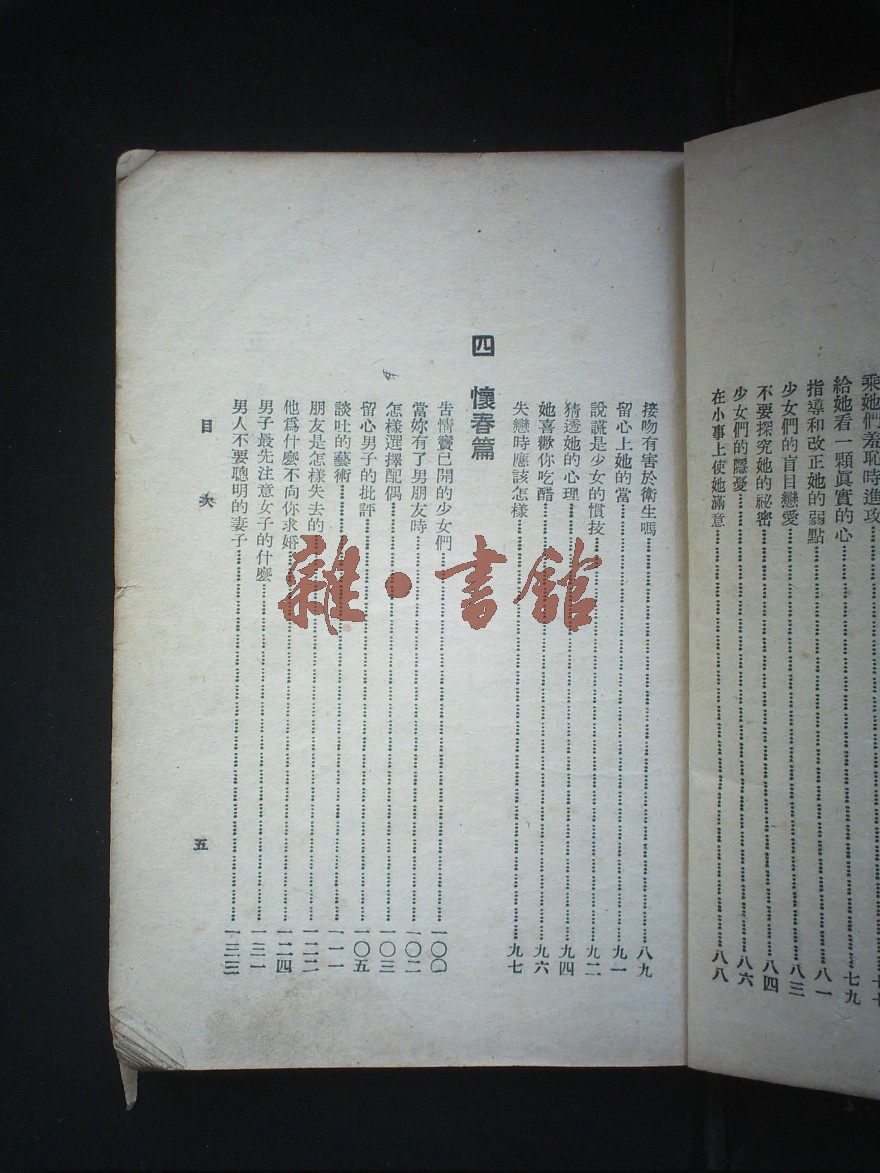 乘她們羞恥時進攻……七七
給她看一顆眞實的心……七九
指導和改正她的弱點……八一
少女們的盲目戀愛……八三
不要探究她的祕密……八四
少女們的隱憂……八六
在小事上使她滿意……八八
接吻有害於衛生嗎……八九
留心上她的當……九一
說謊是少女的慣技……九二
猜透她的心理……九四
她喜歡你吃醋……九六
失戀時應該怎樣……九七
四 懷春篇
吿情竇已開的少女們……一〇〇
當妳有了男朋友時……一〇二
怎樣選擇配偶……一〇三
留心男子的批評……一〇五
談吐的藝術……一一一
朋友是怎樣失去的……一二二
他爲什麽不向你求婚……一二四
男子最先注意女子的什麽……一三一
男人不要聰明的妻子……一三三
目次
五
雜·書館